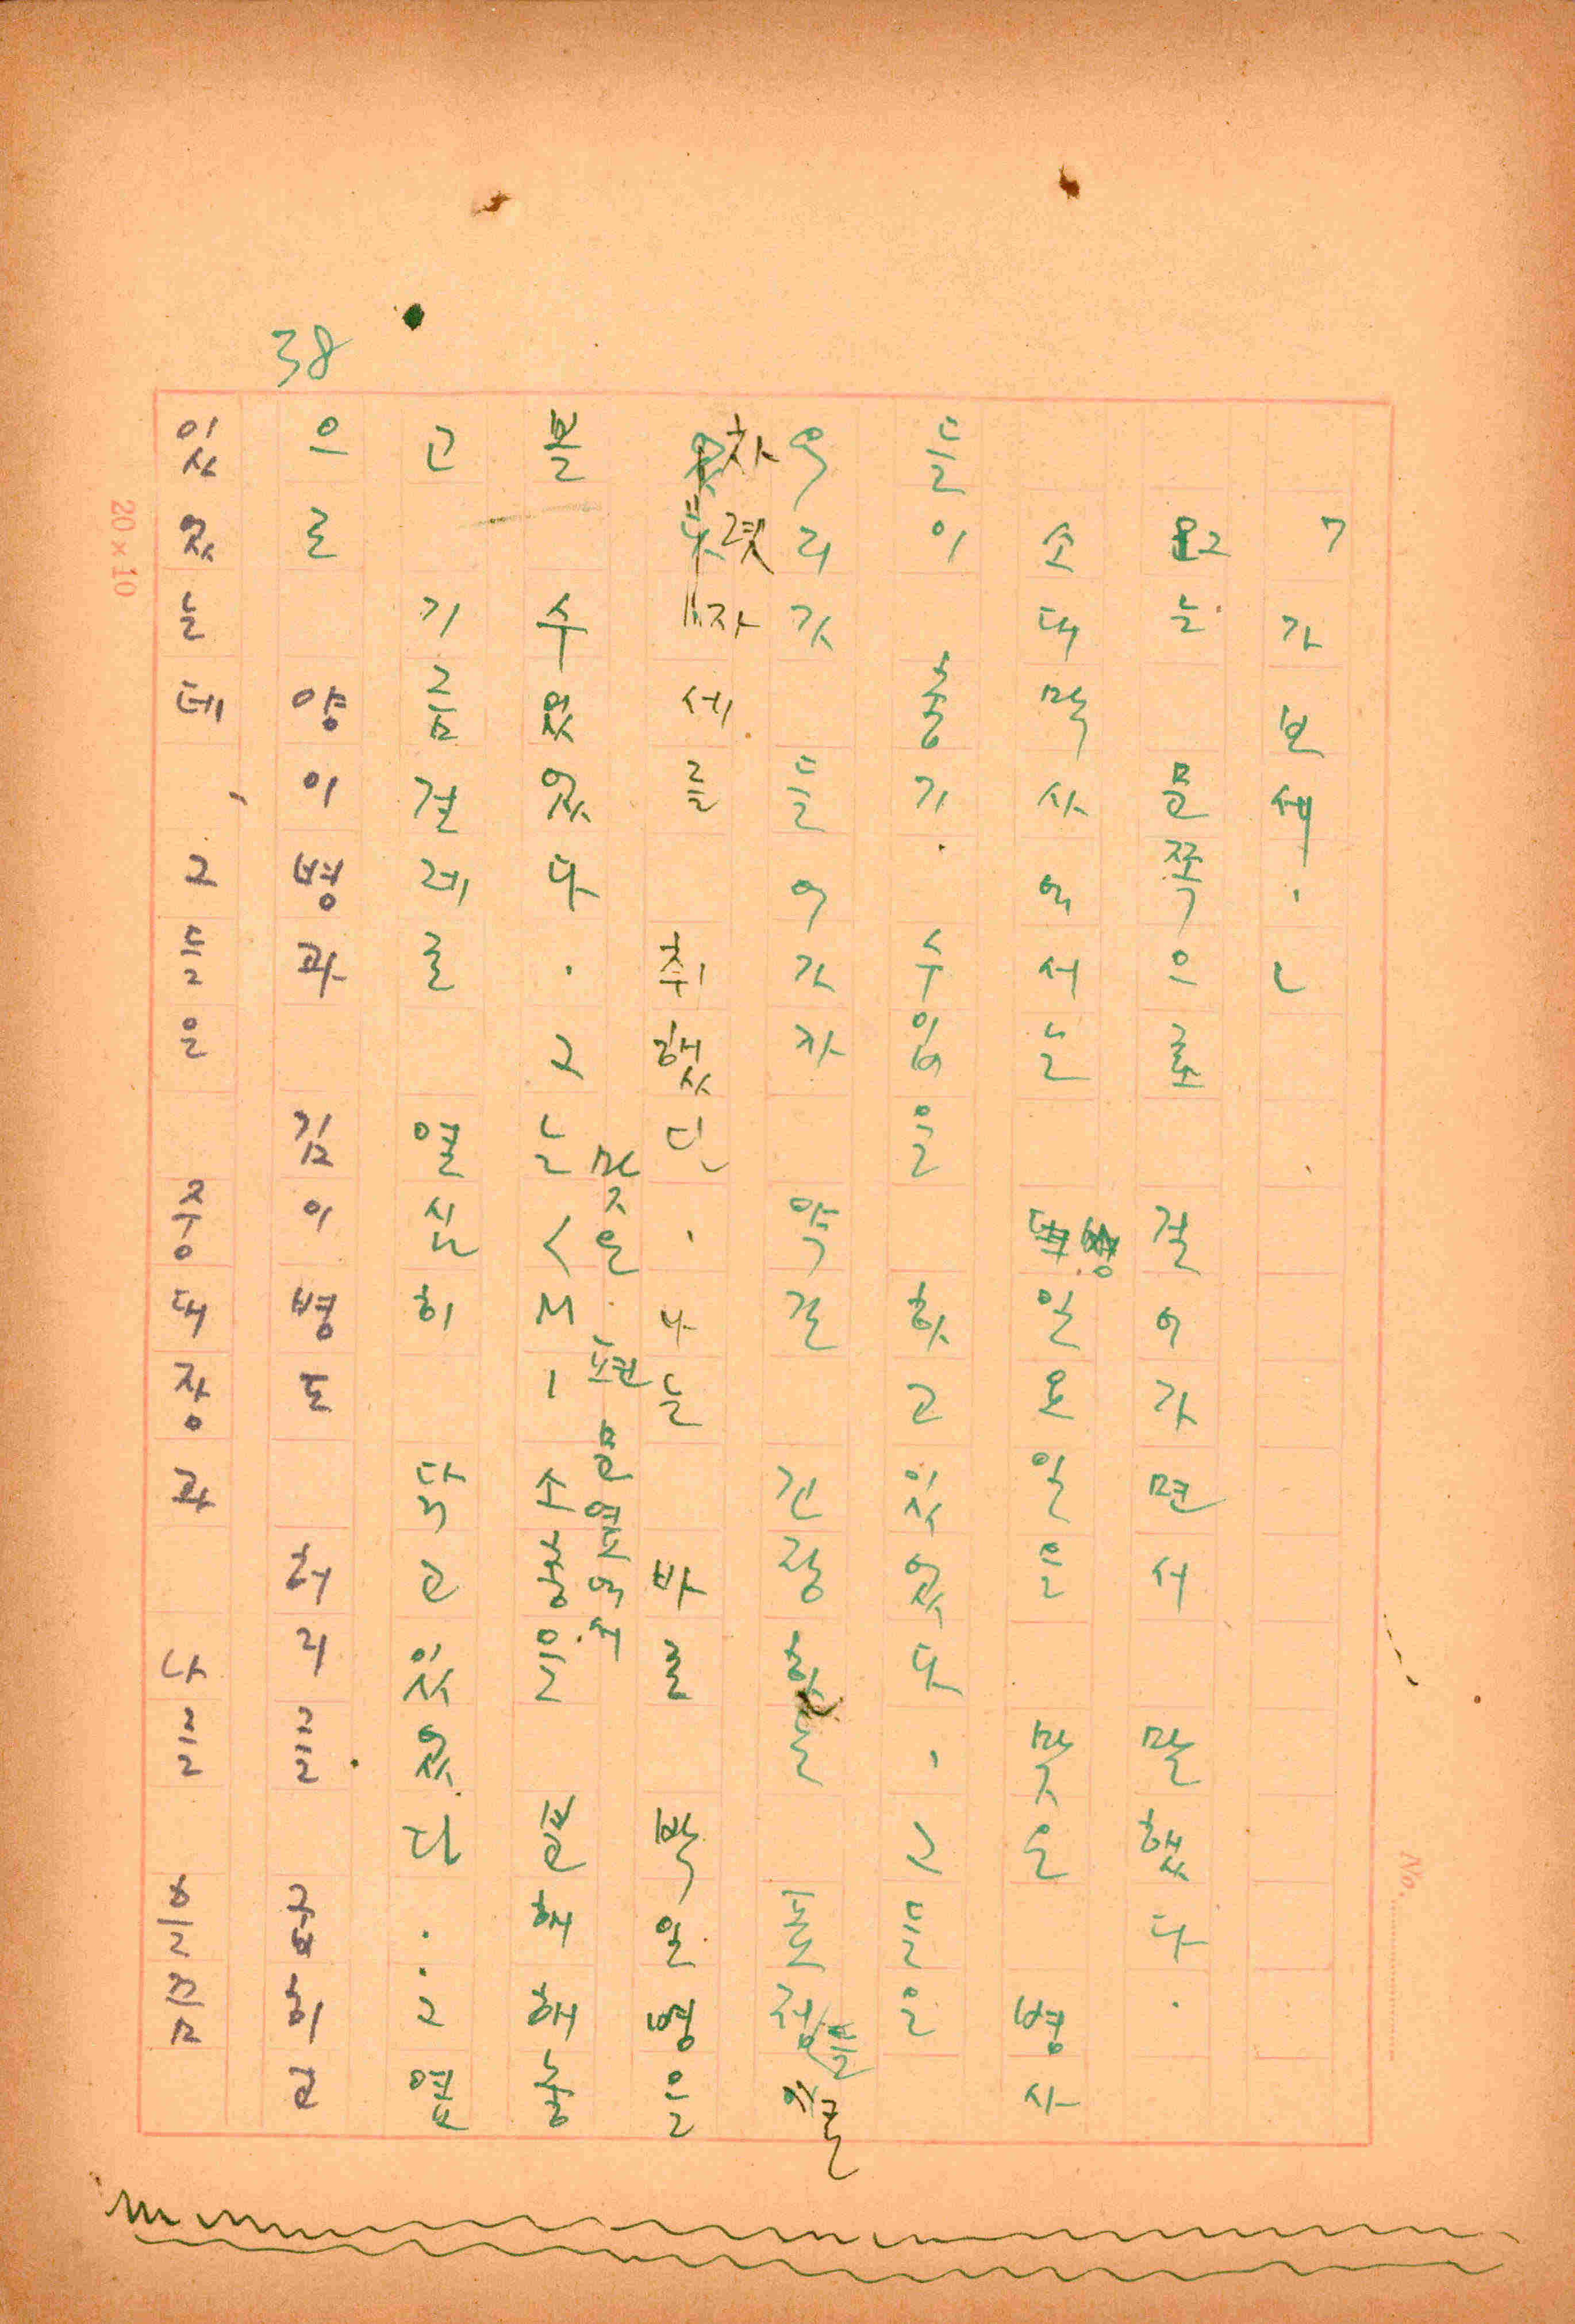 38
「가 보세.」
그는 문쪽으로 걸어가면서 말했다.
소대막사에서는 일요일을 맞은 병사
들이 총기.수입을 하고 있었다. 그들은
우리가 들어가자 약간 긴장하는 표정들
차렷자세를 취했다. 나는 바로 박일병을
맞은편 문옆에서
볼 수 있었다. 그는 M1 소총을 분해해 놓
고 기름걸레로 열심히 닦고 있었다. 그 옆
으로 양이병과 김이병도 허리를 굽히고
있었는데 그들은 중대장과 나를 흘끔
20×10
No.